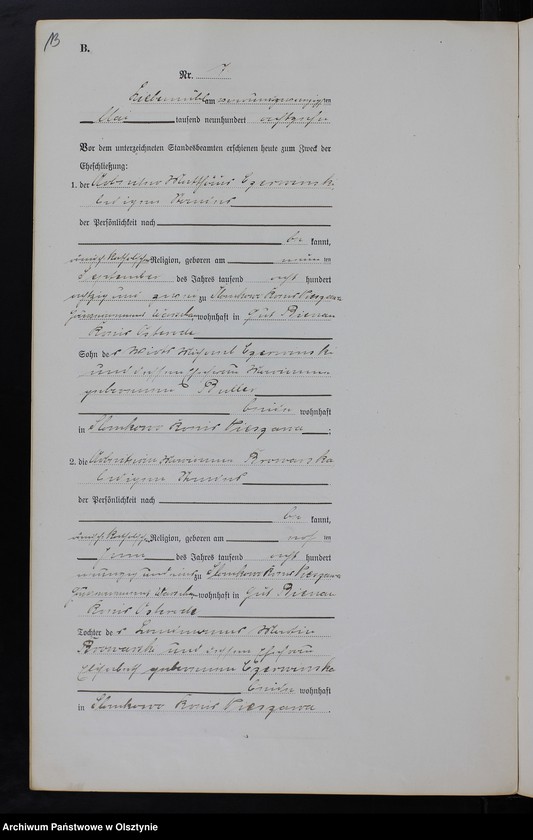 B.
Nr. 7
Liebemühl am neunundzwanzigsten
Mai tausend neunhundert achtzehn
Vor dem unterzeichneten Standesbeamten erschienen heute zum Zweck der
Eheschließung:
1. der Arbeiter Matthäus Czerwinski
ledigen Standes
der Persönlichkeit nach
be kannt,
Religion, geboren am ten
September des Jahres tausend acht hundert
achtzig und zu Kreis
wohnhaft in Gut Bienau
Kreis Osterode
Sohn des Wirts Michael Czerwinski
und dessen Ehefrau Marianna
geborenen
beide wohnhaft
in Kreis ;
2. die Arbeiterin Marianna Browarska
ledigen Standes
der Persönlichkeit nach
be kannt,
Religion, geboren am ten
Juni des Jahres tausend acht hundert
neunzig und zu Kreis
wohnhaft in Gut Bienau
Kreis Osterode
Tochter des Landmanns Martin
Browarski und dessen Ehefrau
Elisabeth geborenen Czerwinska
beide wohnhaft
in Kreis .
Archiwum Państwowe w Olsztynie